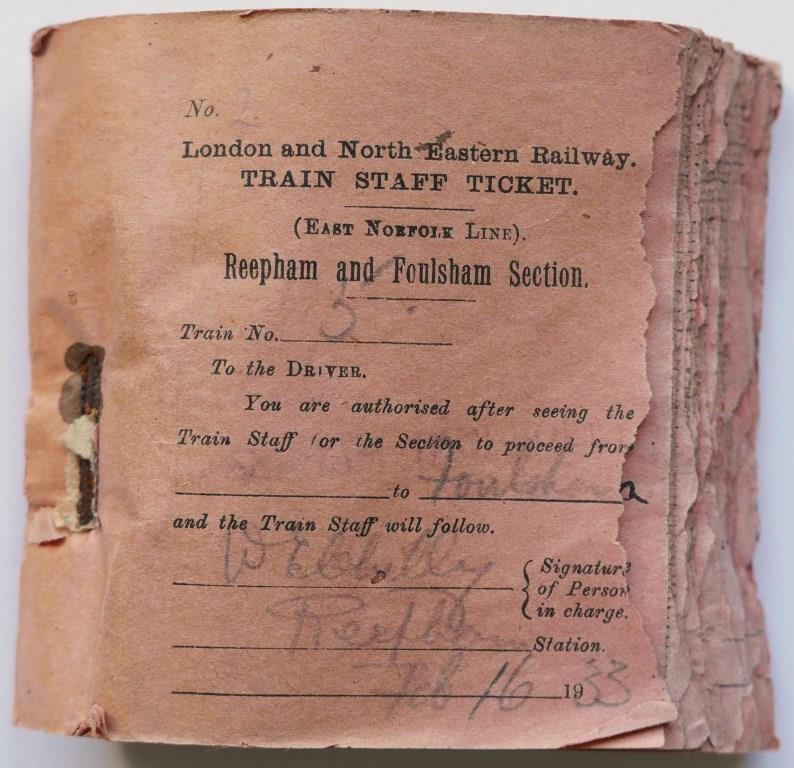 No. 2
London and North Eastern Railway.
TRAIN STAFF TICKET.
(EAST NORFOLK LINE).
Reepham and Foulsham Section.
Train No. 3
To the DRIVER.
You are authorised after seeing the
Train Staff for the Section to proceed from
to Foulsham
and the Train Staff will follow.
Signature
of Person
in charge.
Reepham Station.
Feb 16 1933